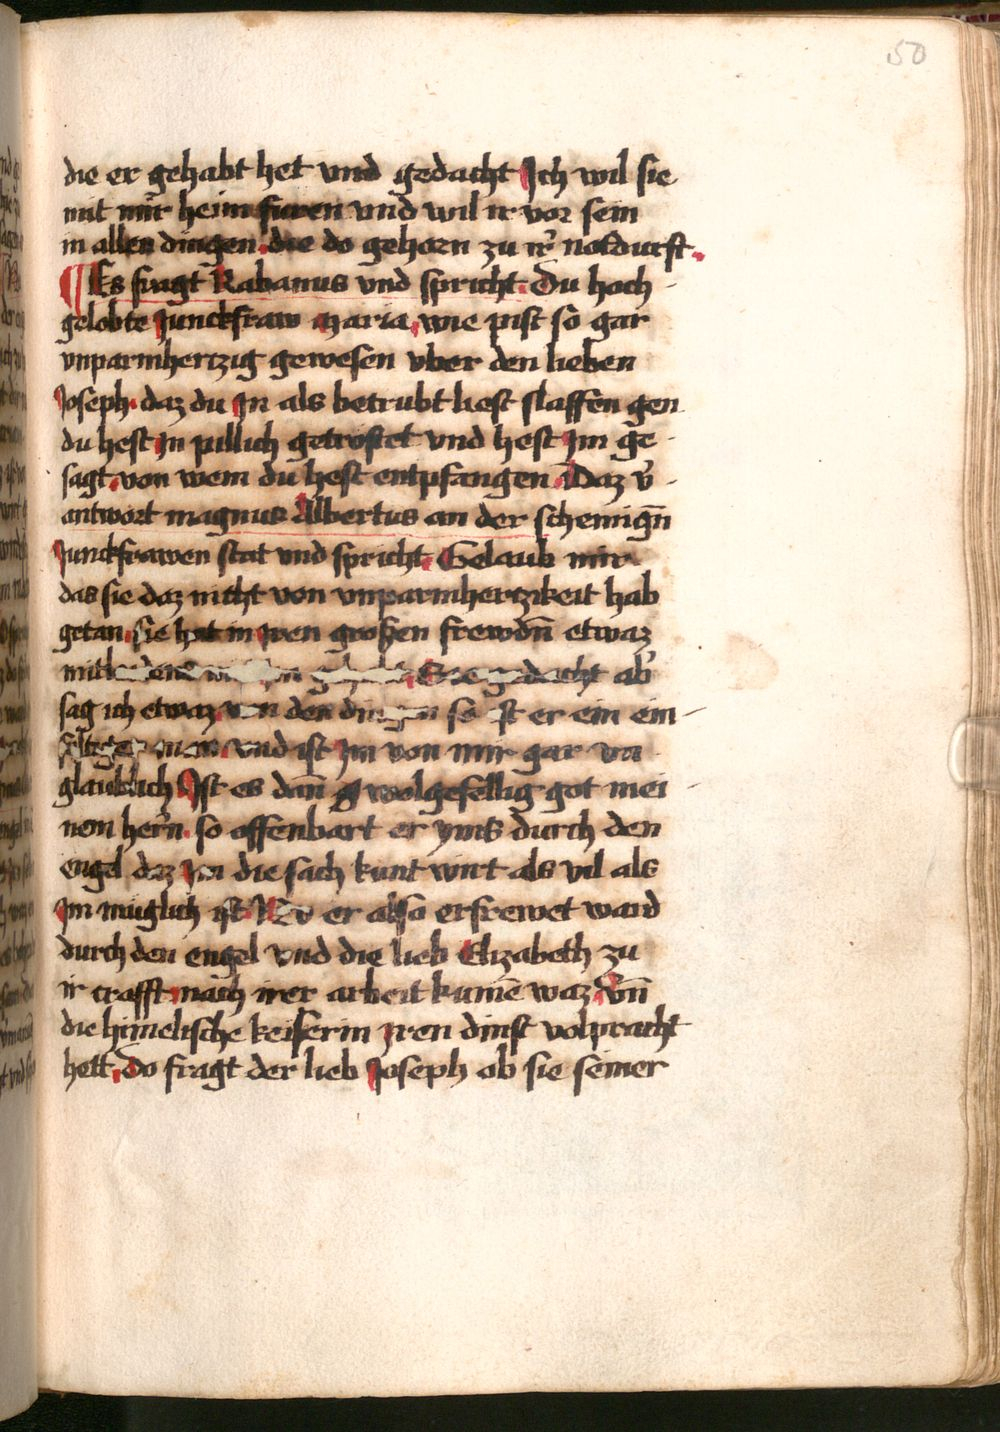 50
die er gehabt het vnd gedacht Ich wil sie
mit mir heim furen vnd wil ir vor sein
in allen dingen die do gehorn zu ir notdurft.
¶ Es fragt Rabanus vnd spricht. Du hoch
gelobte Junckfraw maria, wie pist so gar
vnparmhertzig gewesen vber den lieben
Joseph. daz du In als betrubt liest slaffen gen
du hest In pillich getrostet vnd hest Im ge
sagt, von wem du hest entpfangen. Daz v̄
antwort magnus Albertus an der schemign̄
Junckfrawen stat vnd spricht. Gelaub mir
das sie daz nicht von vnparmhertzikeit hab
getan. sie hat in iren großen frewdn̄ etwaz
gedacht ab̾
sag ich etwaz von den dingen so ist er ein ein
vnd ist Im von mir gar vn
glaublich Ist es dan̄ wolgefellig got mei
nem hern. so offenbart er yms durch den
engel daz Im die sach kunt wirt als vil als
Im muglich ist. er also erfrewet ward
durch den engel vnd die lieb Elizabeth zu
ir crafft nach irer arbeit kumē waz. Vn̄
die himelische keiserin Iren dinst volpracht
hett. Do fragt der lieb Joseph ob sie seiner